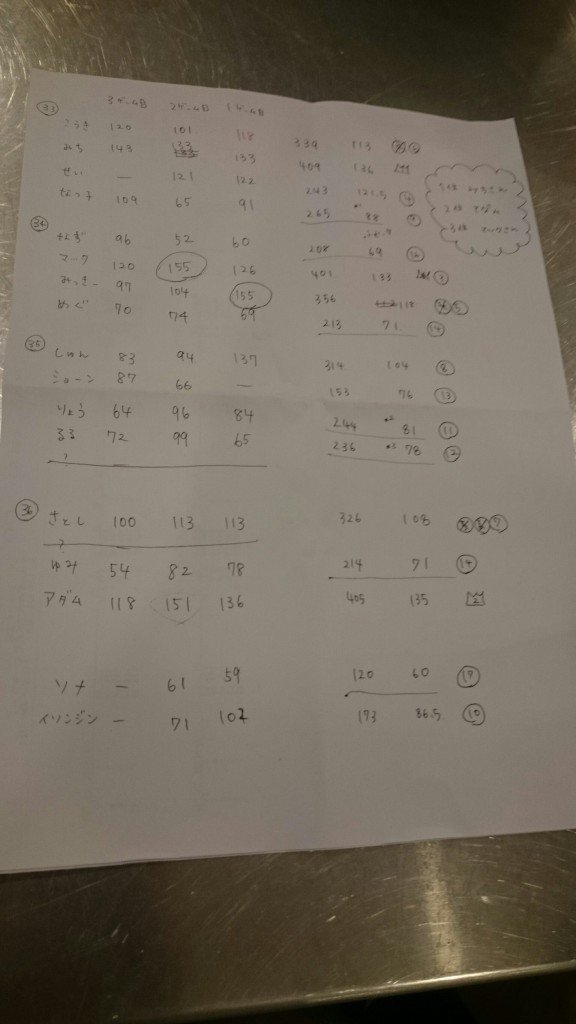 ㉝ 3ゲーム目 2ゲーム目 1ゲーム目
こうき 120 101 118 339 113
みち 143 133 133 409 136
せい — 121 122 243 121.5 ④
109 65 91 265 88
㉞ 96 52 60 208 69
マック 120 155 126 401 133 ③
みっきー 97 104 155 356 118 ⑤
めぐ 70 74 69 213 71 ⑭
㉟ しゅん 83 94 137 314 104 ⑧
ショーン 87 66 — 153 76 ⑬
りょう 64 96 84 244 81 ⑪
るる 72 99 65 236 78 ⑫
?
㊱ さとし 100 113 113 326 108 ⑦
?
ゆみ 54 82 78 214 71 ⑭
アダム 118 151 136 405 135 2
ソナ — 61 59 120 60 ⑰
イソンジン — 71 102 173 86.5 ⑩
1位 みちさん
2位 アダム
3位 マックさん